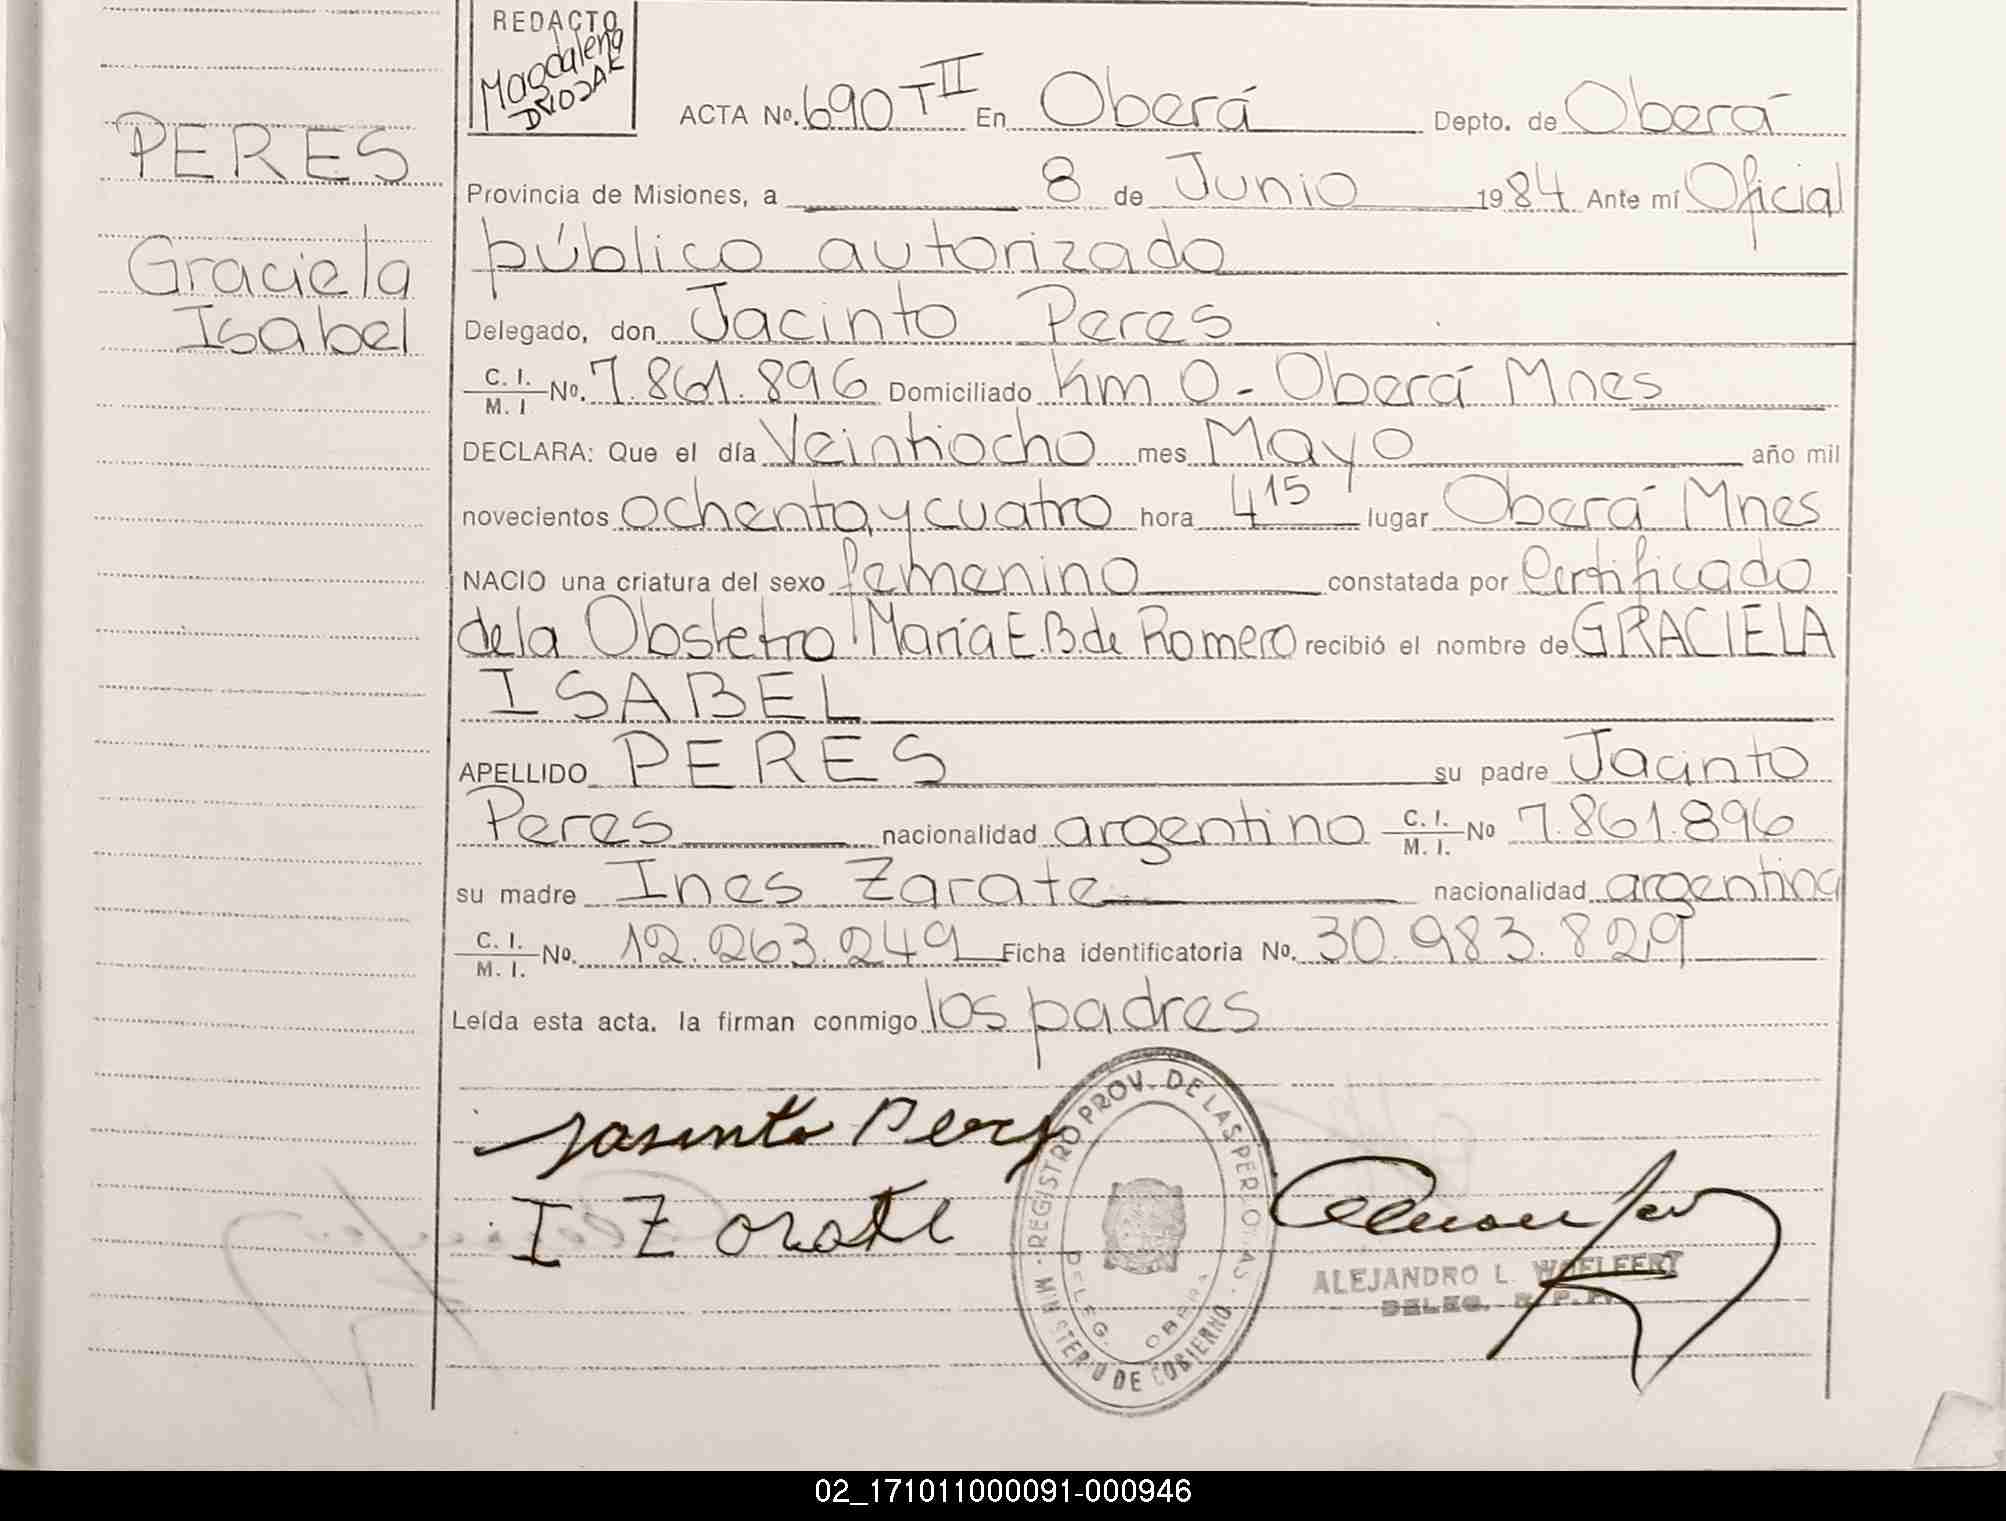 REDACTO
Magdalena
DVOJAK
ACTA No. 690 T II En Oberá Depto. de Oberá
PERES
Provincia de Misiones, a 8 de Junio 1984 Ante mí Oficial
público autorizado
Graciela
Isabel
Delegado, don Jacinto Peres
C. I. / M. I No. 7.861.896 Domiciliado Km 0 - Oberá Mnes
DECLARA: Que el día Veintiocho mes Mayo año mil
novecientos ochenta y cuatro hora 4 15 lugar Oberá Mnes
NACIO una criatura del sexo femenino constatada por Certificado
de la Obstetra María E. B. de Romero recibió el nombre de GRACIELA
ISABEL
APELLIDO PERES su padre Jacinto
Peres nacionalidad argentino C. I. / M. I. No 7.861.896
su madre Ines Zarate nacionalidad argentina
C. I. / M. I. No. 12.263.249 Ficha identificatoria No. 30.983.829
Leída esta acta. la firman conmigo los padres
Jasinto Peres
I Zarate
REGISTRO PROV. DE LAS PERSONAS
MINISTERIO DE GOBIERNO
DELEG. OBERA
ALEJANDRO L. WOELFERT
DELEG. R. P. P.
02_171011000091-000946